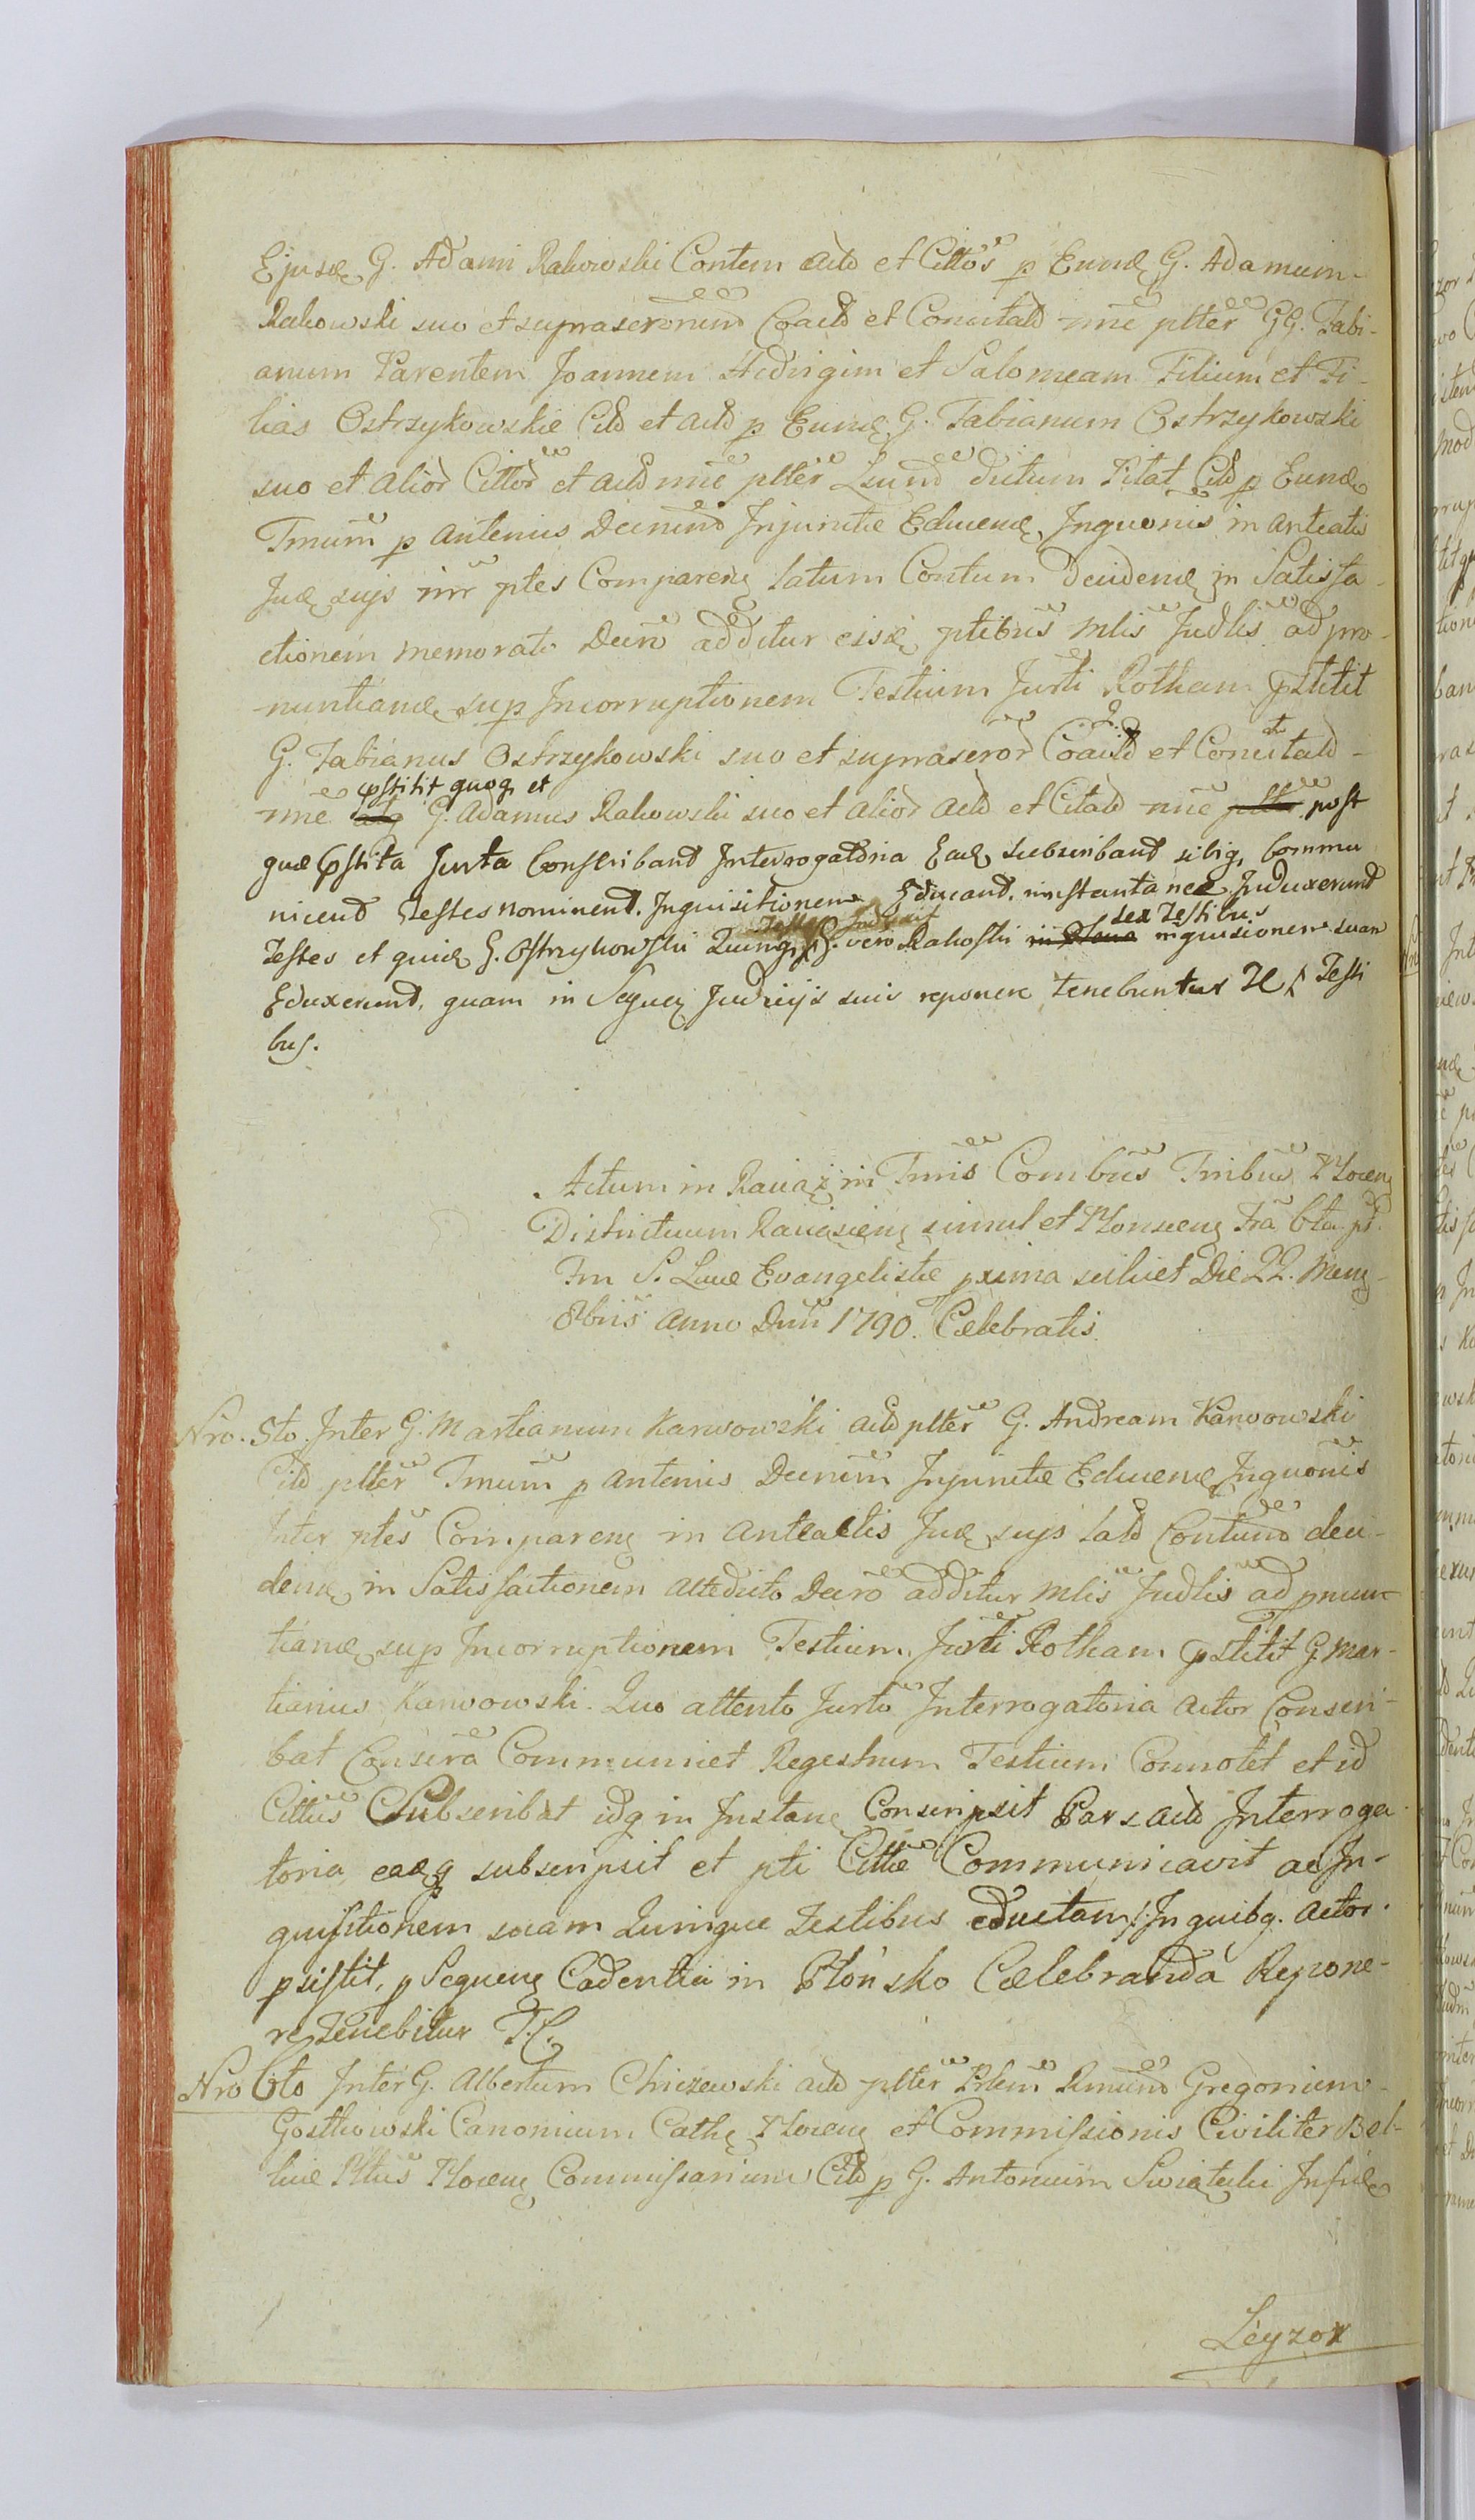 Ejusd G. Adami Rakowski Contem actd et Cittos p Eund G. Adamum
Rakowski suo et suprascronund Coactd et Concitatd nne plter GG. Fabi-
anum Parentem Joannem Hedvigim et Salomeam Filium et Fi-
lias Ostrzykowskie Citd et actd p Eund G. Fabianum Ostrzykowski
suo et alior Cittor et actd nne plter dictum Titat Citd p Eund
Tmum p antenus Decrnund Injunctae Educend Inquonis in anteatis
Jud sujs inr ptes Comparens latum Contum Decidend in Satisfa-
ctionem memorato Decro additur eisd ptibus Mlis Judlis ad pro-
nuntiand sup Incorruptionem Testium Jurti Rotham pstitit
G. Fabianus Ostrzykowski suo et suprascror Coactd et Concitatd
pstitit quoq et
nne G. Adamus Rakowski suo et alior actd et Citatd nne post
quae pstita Jurta Conscribant Interrogatoria Ead subscribant sibiq Commu
nicent Testes nominent. Inquisitionem Educant. instantanee Induxerunt
sex Testibus
Testes et quid G. Ostrzykowski Quinq G. vero Rakoski inquisionem suam
Eduxerunt, quam in Sequen Judicijs suis reponere tenebuntur Testi
bus.
Actum in Raciąż in Tmis Conbus Tmibus Plocen
Districtuum Raciąziens simul et Plonscens Fra 6ta pt
Fm S. Lucae Evangelistae pxima scilicet Die 22. Mens
8bris anno Dni 1790. Celebratis
Nro. 5to. Inter G. Martianum Karwowski actd plter G. Andream Karwowski
Citd plter Tmum p antenus Decrnum Injunctae Educend Inquonis
Inter ptes Comparens in anteactis Jud sujs latd Contund deci-
dend in Satisfactionem attedicto Decro additur Mlis Judlis ad pnun-
tiand sup Incorruptionem Testium Jurti Rotham pstitit G. Mar-
tianus Karwowski. Quo attento Jurto Interrogatoria actor Conscri-
bat Conscra Communicet Regestrum Testium Connotet et id
Cittus Subscribat idq in Instane Conscripsit Pars actd Interroga
toria, eaq subscripsit et pti Cittae Communicavit ac In-
quisitionem suam Quinque Testibus eductam /: In quibq. actor
psistit, p Sequens Cadentia in Płońsko Celebranda Repone-
re Tenebitur T.C.
Nro 6to Inter G. Albertum Chiczewski actd plter Prlem Rmund Gregorium
Gostkowski Canonicum Cathe Plocens et Commissionis Civiliter Bel-
licae Pltus Plocens Commissarium Citd p G. Antonium Swiątecki Insud
Leyzor